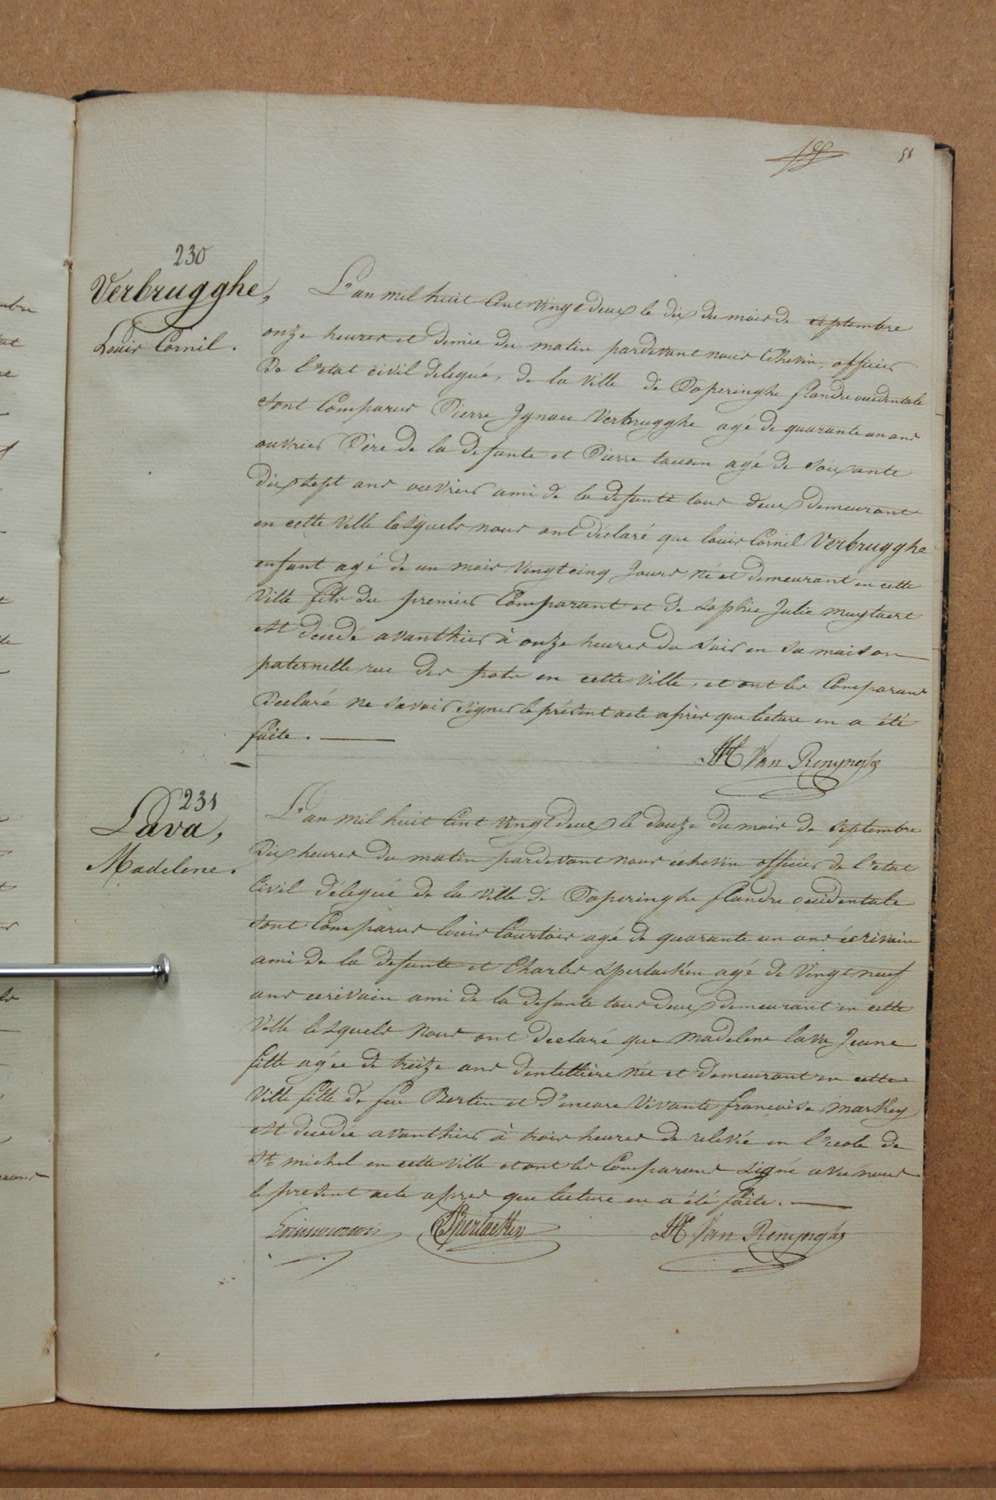 58
230
Verbrugghe,
Louis Cornil.
L'an mil huit cent vingt deux le dix du mois de septembre
onze heures et demie du matin pardevant nous Echevin, officier
De l'etat civil delegué, de la ville de Poperinghe flandre occidentale
sont Comparus Pierre Ignace Verbrugghe agé de quarante un ans
ouvrier Père de la defunte et Pierre agé de soixante
dix sept ans ouvrier ami de la defunte tous deux demeurant
en cette ville lesquels nous ont déclaré que louis Cornil Verbrugghe
enfant agé de un mois vingt cinq Jours né et demeurant en cette
Ville fils du premier Comparant et de Sophie Julie
est decedé avanthier à onze heures du soir en sa maison
paternelle rue des pots en cette ville, et ont les Comparans
Declaré ne savoir signer le présent acte après que lecture en a été
faite.
Mt Van Renynghe
231
Lava,
Madelene.
L'an mil huit Cent vingt deux le douze du mois de septembre
Dix heures du matin pardevant nous echevin officier de l'etat
Civil délegué de la ville de Poperinghe flandre occidentale
sont Comparus louis Courtois agé de quarante un ans écrivain
ami de la defunte et Charles Sperlaekën agé de Vingt neuf
ans ecrivain ami de la defunte tous deux demeurant en cette
Ville lesquels Nous ont declaré que Madelene lava Jeune
fille agée de treize ans dentellière née et demeurant en cette
Ville fille de feu Bertin et d'encore Vivante françoise markey
est decedée avanthier à trois heures de relevée en l'ecole de
St michel en cette ville et ont les Comparans signé avec nous
le present acte apres que lecture en a été faite.
Mt Van Renynghe